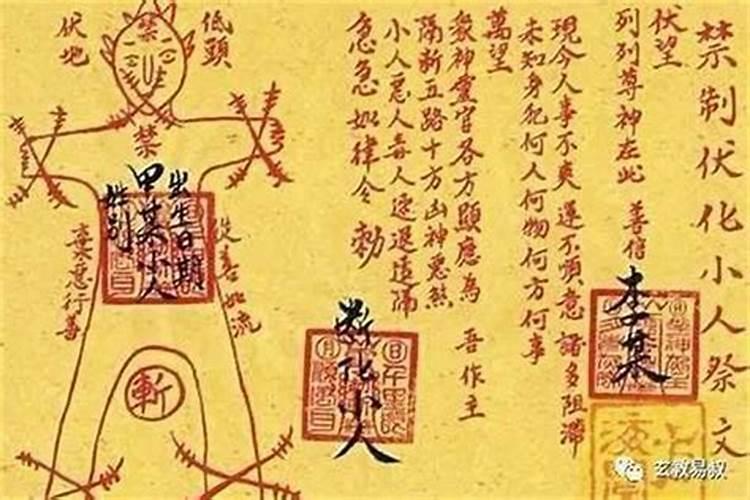 禁制伏化小人祭文
伏望
列列尊神在此 善信 李某
現今人事不爽運不順意諸多阻滯
未知身犯何人何物何方何事
萬望
眾神靈官各方顯應為 吾作主
隔斷五路十方凶神惡煞
小人惡人毒人速退遠隔
急急如律令 勅
斷化小人
低頭
伏地
禁
禁
出生日期
甲某小人
性別
從善如流
棄惡行善
斬
玄教易叔